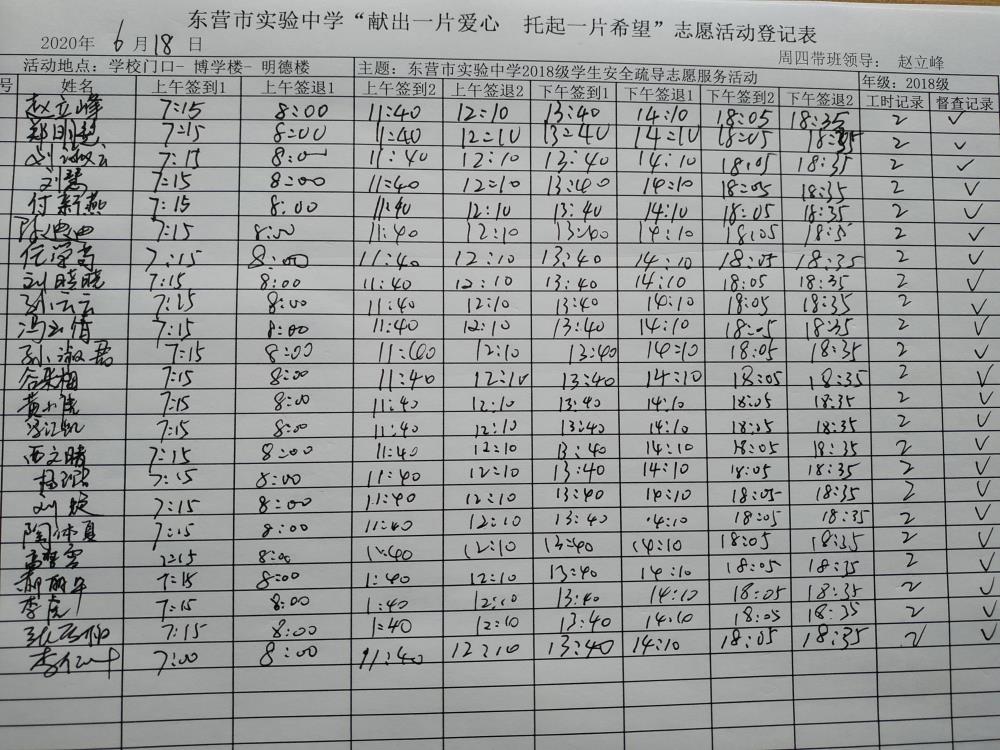 东营市实验中学“献出一片爱心 托起一片希望”志愿活动登记表
2020年 6月18日 周四带班领导: 赵立峰
活动地点: 学校门口- 博学楼- 明德楼 主题: 东营市实验中学2018级学生安全疏导志愿服务活动 年级: 2018级
号 姓名 上午签到1 上午签退1 上午签到2 上午签退2 下午签到1 下午签退1 下午签到2 下午签退2 工时记录 督查记录
赵立峰 7:15 8:00 11:40 12:10 13:40 14:10 18:05 18:35 2 ✓
郑明慧 7:15 8:00 11:40 12:10 13:40 14:10 18:05 18:35 2 ✓
刘 7:15 8:00 11:40 12:10 13:40 14:10 18:05 18:35 2 ✓
刘慧 7:15 8:00 11:40 12:10 13:40 14:10 18:05 18:35 2 ✓
付新燕 7:15 8:00 11:40 12:10 13:40 14:10 18:05 18:35 2 ✓
陈迪迪 7:15 8:00 11:40 12:10 13:40 14:10 18:05 18:35 2 ✓
任学高 7:15 8:00 11:40 12:10 13:40 14:10 18:05 18:35 2 ✓
刘晓晓 7:15 8:00 11:40 12:10 13:40 14:10 18:05 18:35 2 ✓
孙云云 7:15 8:00 11:40 12:10 13:40 14:10 18:05 18:35 2 ✓
冯玉倩 7:15 8:00 11:40 12:10 13:40 14:10 18:05 18:35 2 ✓
孙淑君 7:15 8:00 11:40 12:10 13:40 14:10 18:05 18:35 2 ✓
谷来梅 7:15 8:00 11:40 12:10 13:40 14:10 18:05 18:35 2 ✓
黄小虎 7:15 8:00 11:40 12:10 13:40 14:10 18:05 18:35 2 ✓
7:15 8:00 11:40 12:10 13:40 14:10 18:05 18:35 2 ✓
西文晴 7:15 8:00 11:40 12:10 13:40 14:10 18:05 18:35 2 ✓
杨 7:15 8:00 11:40 12:10 13:40 14:10 18:05 18:35 2 ✓
刘 7:15 8:00 11:40 12:10 13:40 14:10 18:05 18:35 2 ✓
陶体夏 7:15 8:00 11:40 12:10 13:40 14:10 18:05 18:35 2 ✓
7:15 8:00 11:40 12:10 13:40 14:10 18:05 18:35 2 ✓
郝丽华 7:15 8:00 1:40 12:10 13:40 14:10 18:05 18:35 2 ✓
李虎 7:15 8:00 1:40 12:10 13:40 14:10 18:05 18:35 2 ✓
张 7:15 8:00 1:40 12:10 13:40 14:10 18:05 18:35 2 ✓
李 7:00 8:00 11:40 12:10 13:40 14:10 18:05 18:35 2 ✓